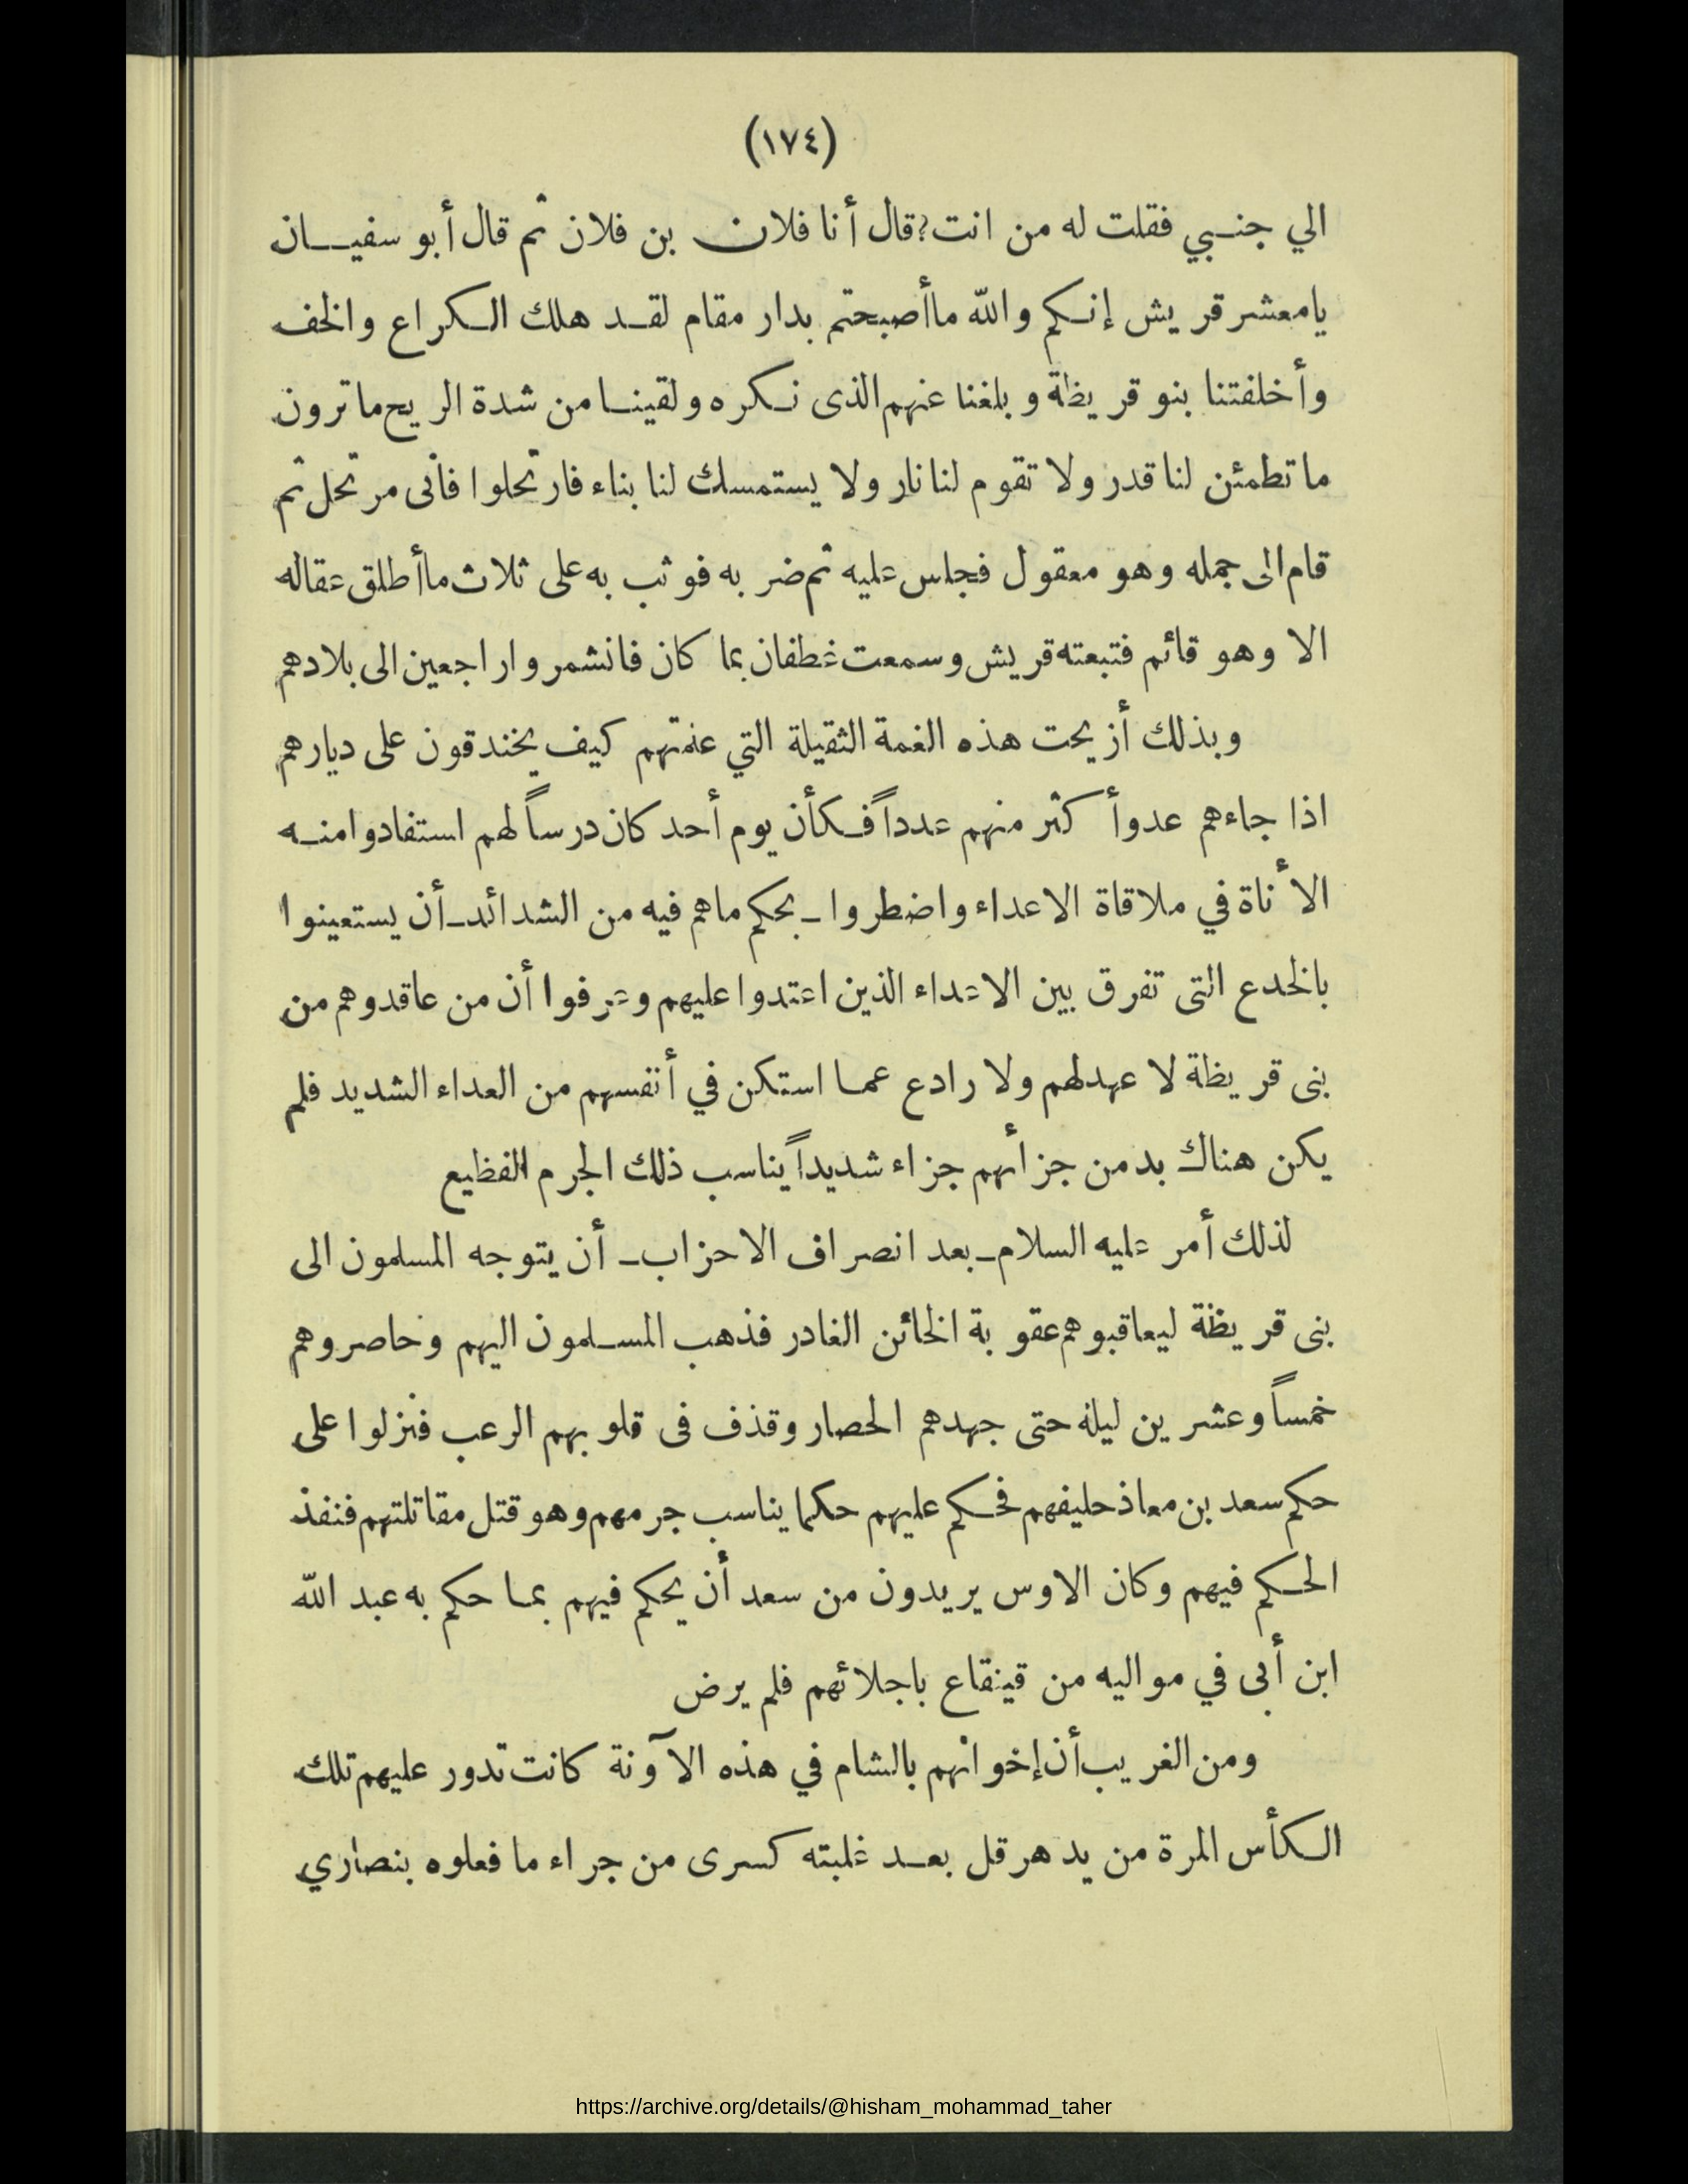 (١٧٤)
الي جنبي فقلت له من انت؟ قال أنا فلان بن فلان ثم قال أبو سفيان
يامعشر قريش إنكم والله ماأصبحتم بدار مقام لقد هلك الكراع والخف
وأخلفتنا بنو قريظة وبلغنا عنهم الذى نكره ولقينا من شدة الريح ماترون
ماتطمئن لنا قدر ولا تقوم لنا نار ولا يستمسك لنا بناء فارتحلوا فأنى مرتحل ثم
قام الى جمله وهو معقول فجلس عليه ثم ضربه فوثب به على ثلاث ماأطلق عقاله
الا وهو قائم فتبعته قريش وسمعت غطفان بما كان فانشمروا راجعين الى بلادهم
وبذلك أزيحت هذه الغمة الثقيلة التي علمتهم كيف يخندقون على ديارهم
اذا جاءهم عدو أكثر منهم عدداً فكأن يوم أحد كان درساً لهم استفادوا منه
الأناة في ملاقاة الاعداء واضطروا ـ بحكم ماهم فيه من الشدائد ـ أن يستعينوا
بالخدع التى تفرق بين الاعداء الذين اعتدوا عليهم وعرفوا أن من عاقدوهم من
بنى قريظة لا عهد لهم ولا رادع عما استكن في أنفسهم من العداء الشديد فلم
يكن هناك بد من جزأئهم جزاء شديداً يناسب ذلك الجرم الفظيع
لذلك أمر عليه السلام ـ بعد انصراف الاحزاب ـ أن يتوجه المسلمون الى
بنى قريظة ليعاقبوهم عقوبة الخائن الغادر فذهب المسلمون اليهم وحاصروهم
خمساً وعشرين ليلة حتى جهدهم الحصار وقذف فى قلوبهم الرعب فنزلوا على
حكم سعد بن معاذ حليفهم فحكم عليهم حكما يناسب جرمهم وهو قتل مقاتلتهم فنفذ
الحكم فيهم وكان الاوس يريدون من سعد أن يحكم فيهم بما حكم به عبد الله
ابن أبى في مواليه من قينقاع باجلائهم فلم يرض
ومن الغريب أن إخوانهم بالشام في هذه الآونة كانت تدور عليهم تلك
الكأس المرة من يد هرقل بعد غلبته كسرى من جراء ما فعلوه بنصاري
https://archive.org/details/@hisham_mohammad_taher